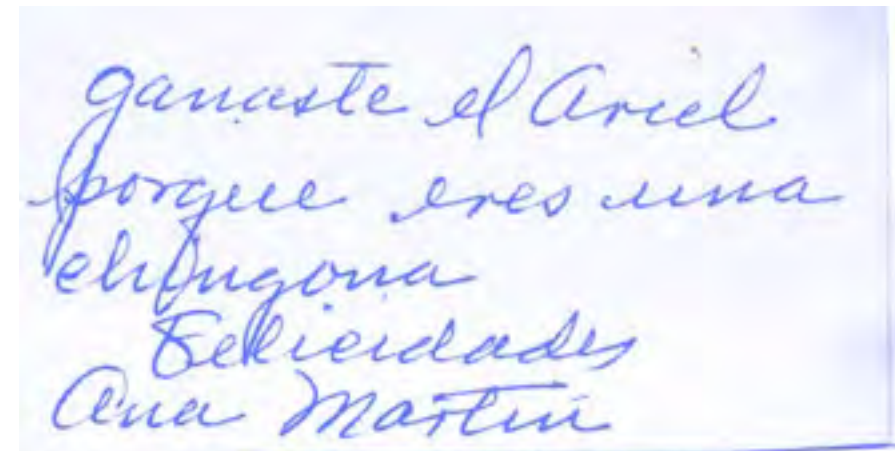 ganaste el Ariel
porque eres una
chingona
Felicidades
Ana Martin